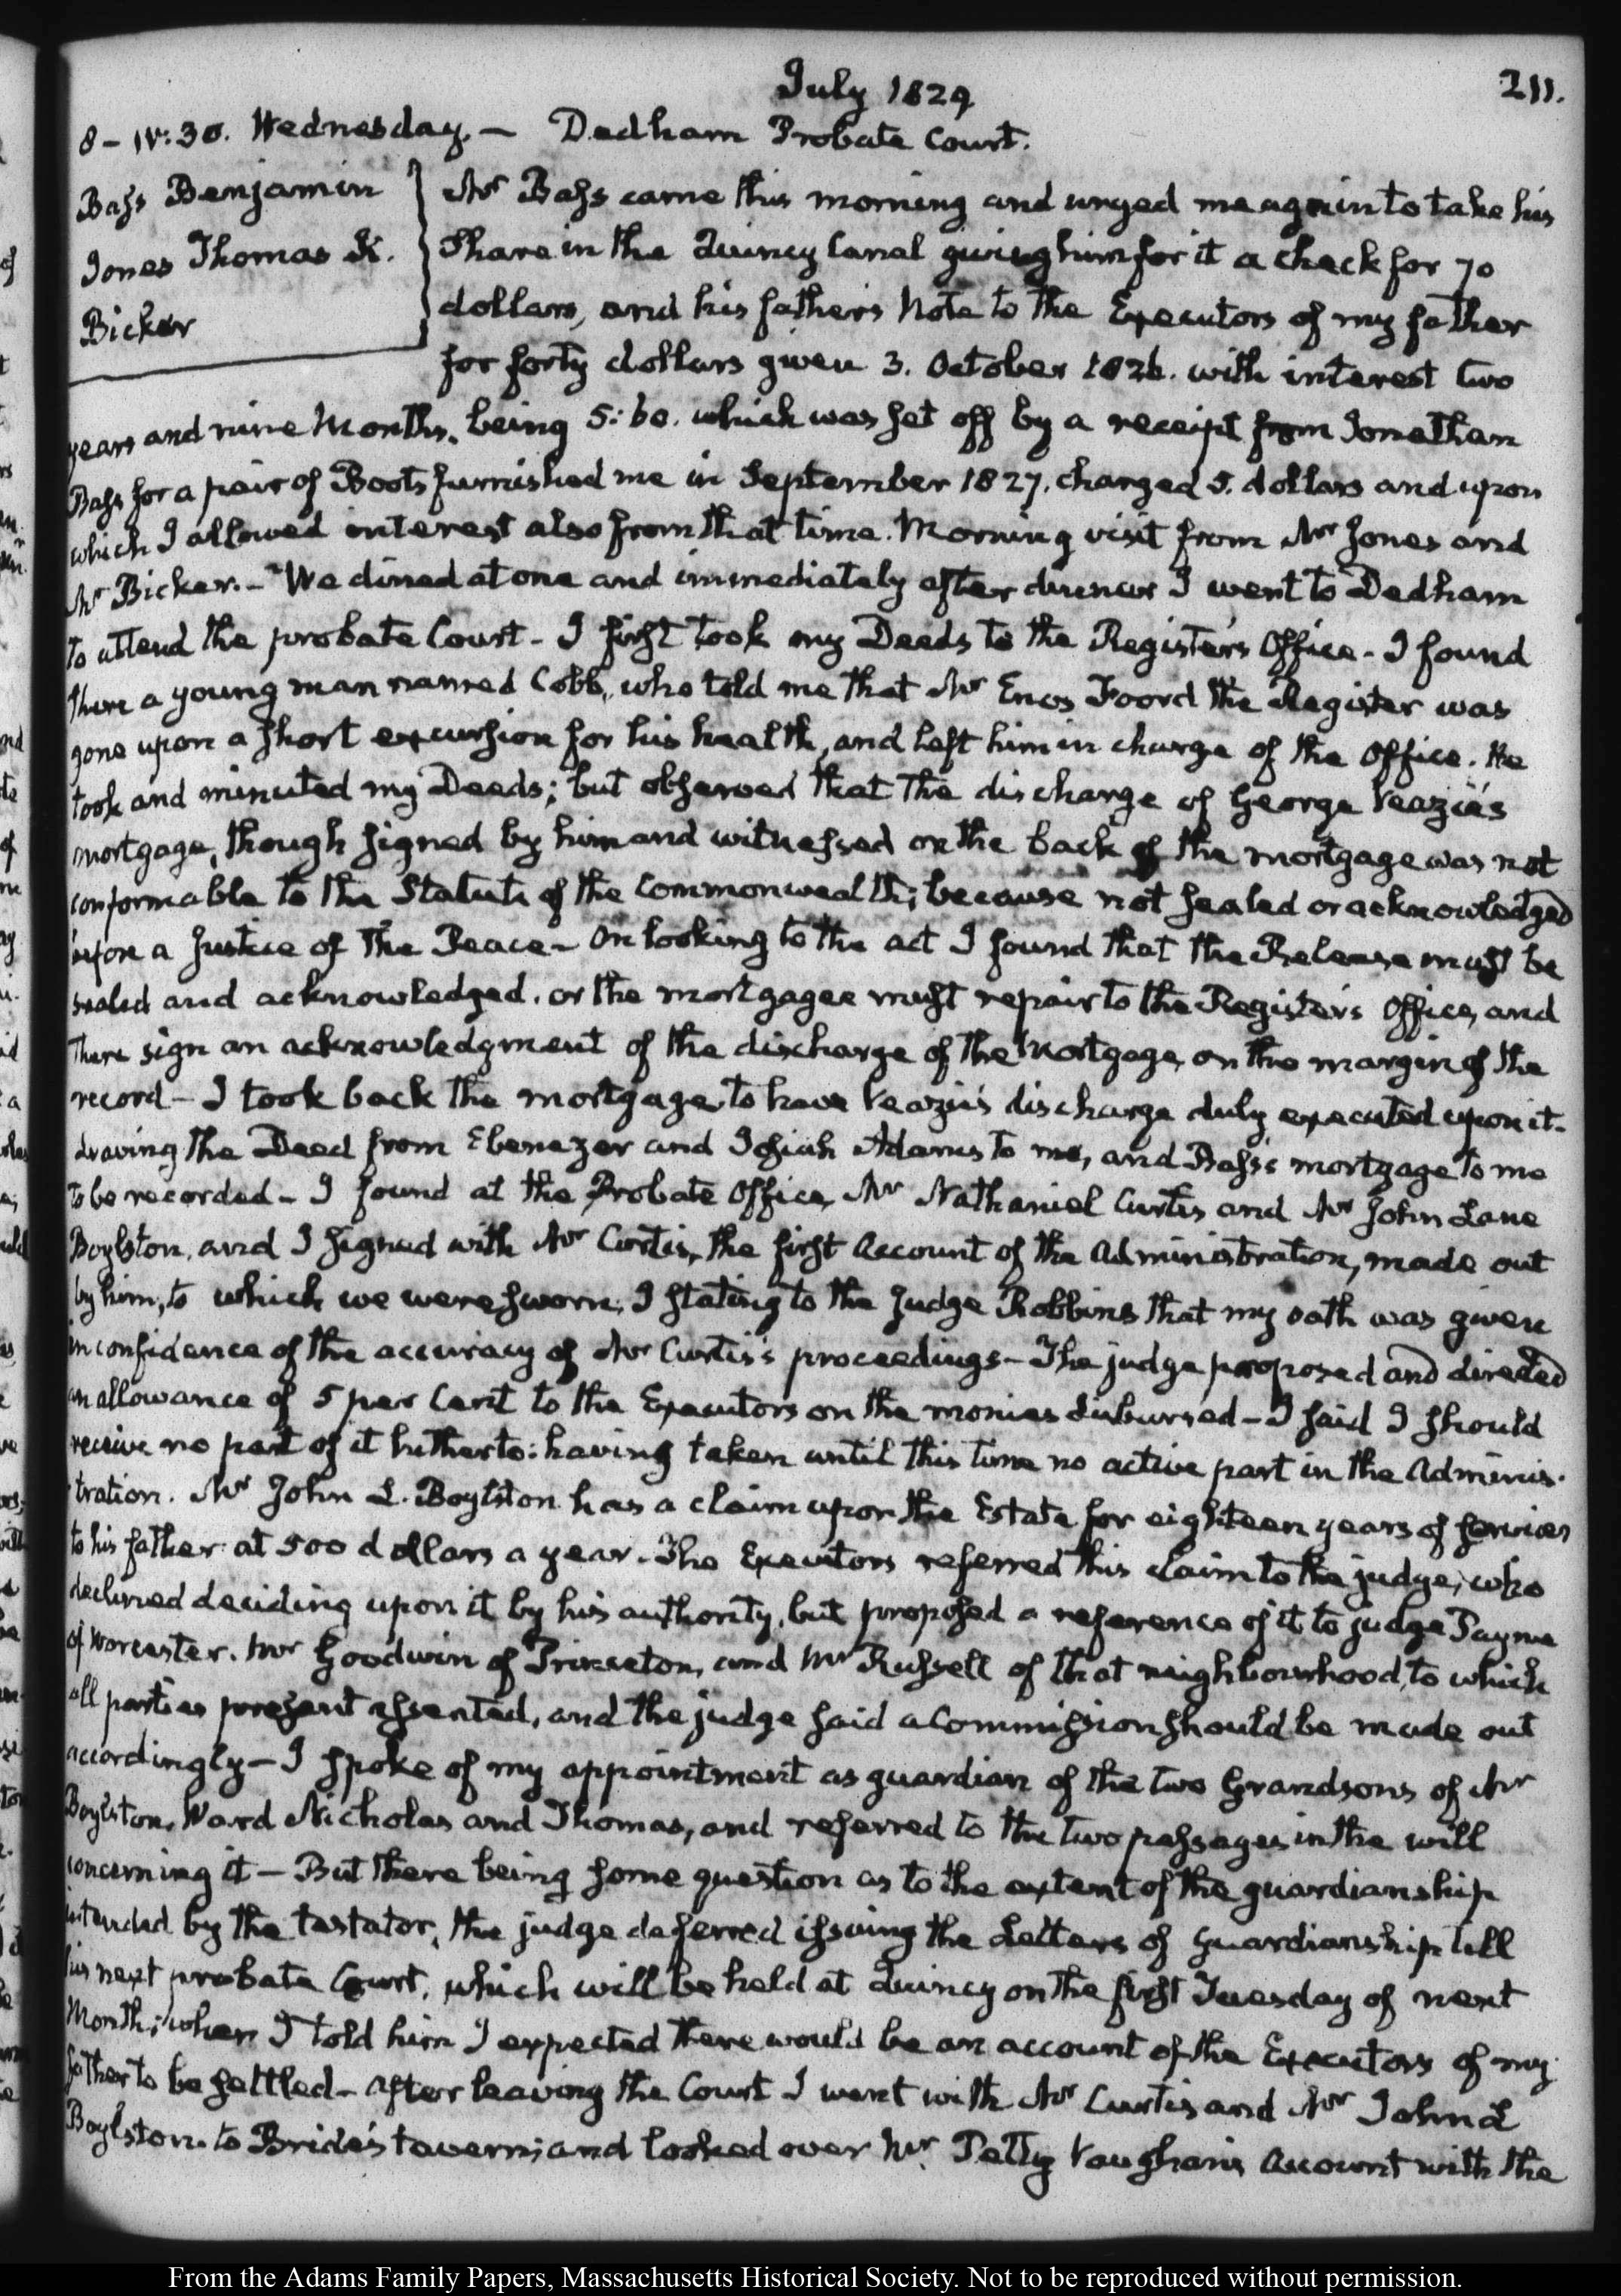 July 1829
211.
8 - IV:30. Wednesday. — Dedham Probate Court.
Bass Benjamin
Jones Thomas K.
Bicker
Mr Bass came this morning and urged me again to take his
Share in the Quincy Canal giving him for it a check for 70
dollars, and his father's Note to the Executors of my father
for forty dollars given 3. October 1826. with interest two
years and nine Months. being 5:60. which was set off by a receipt from Jonathan
Bass for a pair of Boots furnished me in September 1827. charged 5. dollars and upon
which I allowed interest also from that time. Morning visit from Mr Jones and
Mr Bicker. — We dined at one and immediately after dinner I went to Dedham
to attend the probate Court - I first took my Deeds to the Register's Office - I found
there a young man named Cobb, who told me that Mr Enos Foord the Register was
gone upon a short excursion for his health, and left him in charge of the Office. He
took and minuted my Deeds; but observed that the discharge of George Veazie's
mortgage, though signed by him and witnessed on the back of the mortgage was not
conformable to the Statute of the Commonwealth; because not sealed or acknowledged
before a Justice of the Peace - On looking to the act I found that the Release must be
sealed and acknowledged. or the mortgagee must repair to the Register's Office, and
there sign an acknowledgment of the discharge of the Mortgage, on the margin of the
record - I took back the mortgage to have Veazie's discharge duly executed upon it.
leaving the Deed from Ebenezer and Josiah Adams to me, and Bass's mortgage to me
to be recorded - I found at the Probate Office, Mr Nathaniel Curtis and Mr John Lane
Boylston, and I signed with Mr Curtis, the first Account of the Administration, made out
by him, to which we were sworn; I stating to the Judge Robbins that my oath was given
in confidence of the accuracy of Mr Curtis's proceedings - The judge proposed and directed
an allowance of 5 per Cent to the Executors on the monies disbursed - I said I should
receive no part of it hitherto: having taken until this time no active part in the Adminis-
tration. Mr John L. Boylston has a claim upon the Estate for eighteen years of services
to his father at 500 dollars a year. The Executors referred this claim to the judge; who
declined deciding upon it by his authority, but proposed a reference of it to judge Payne
of Worcester. Mr Goodwin of Princeton, and Mr Russell of that neighbourhood, to which
all parties present assented, and the judge said a Commission should be made out
accordingly - I spoke of my appointment as guardian of the two Grandsons of Mr
Boylston, Ward Nicholas and Thomas, and referred to the two passages in the will
concerning it — But there being some question as to the extent of the guardianship
intended by the testator, the judge deferred issuing the Letters of Guardianship till
his next probate Court, which will be held at Quincy on the first Tuesday of next
Month; when I told him I expected there would be an account of the Executors of my
father to be settled - After leaving the Court I went with Mr Curtis and Mr John L
Boylston to Bride's tavern; and looked over Mr. Petty Vaughan's Account with the
From the Adams Family Papers, Massachusetts Historical Society. Not to be reproduced without permission.